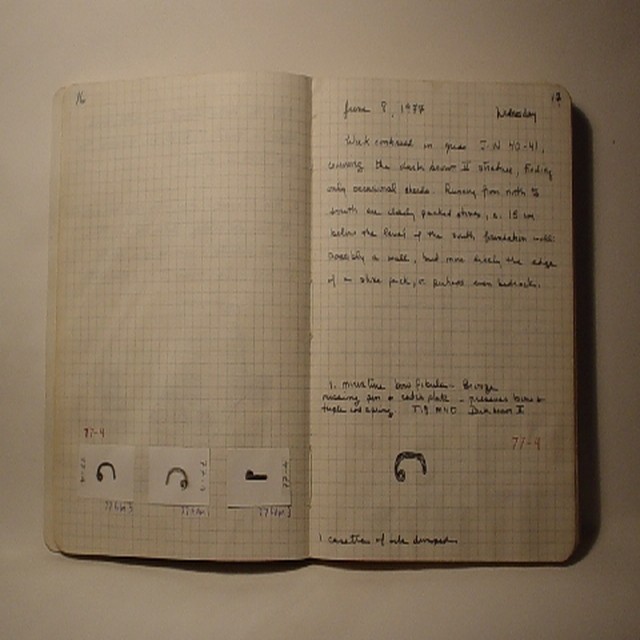 16
77-9
17
June 8, 1977 Wednesday
Work continued in grids I-N 40-41,
removing the dark brown II stratum, finding
only occasional sherds. Running from north to
south are closely packed stones, c. 15 cm
below the level of the south foundation wall:
possibly a wall, but more likely the edge
of a stone pack, or perhaps even bedrock.
1. miniature bow fibula - Bronze
missing pin & catch plate - preserves bow &
triple coil spring. Dk brown II
77-9
1 of